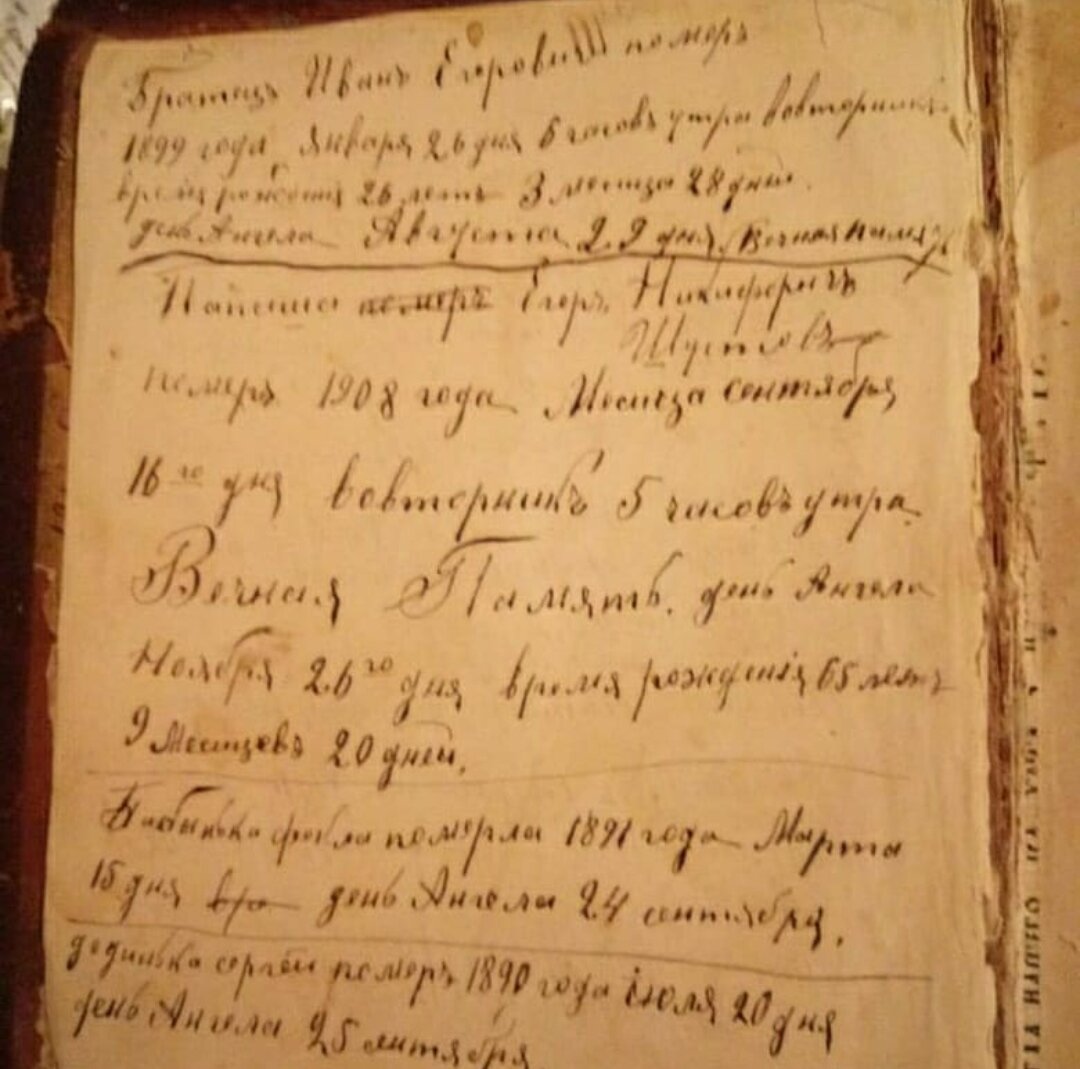 Братецъ Иванъ Егоровичъ померъ
1899 года января 26 дня 6 часовъ утра вовторникъ
время рожденія 26 летъ 3 месяца 28 дней.
день Ангела Августа 29 дня, Вечная память
Папаша померъ Егоръ Никифоричъ
Шустовъ
померъ 1908 года Месяца сентября
16го дня вовторникъ 5 часовъ утра
Вечная Память. день Ангела
Ноября 26го дня время рожденія 65 летъ
9 Месяцевъ 20 дней.
Бабинька фекла померла 1891 года Марта
15 дня вр день Ангела 24 сентября.
дединька сергей померъ 1890 года іюля 20 дня
день Ангела 25 сентября